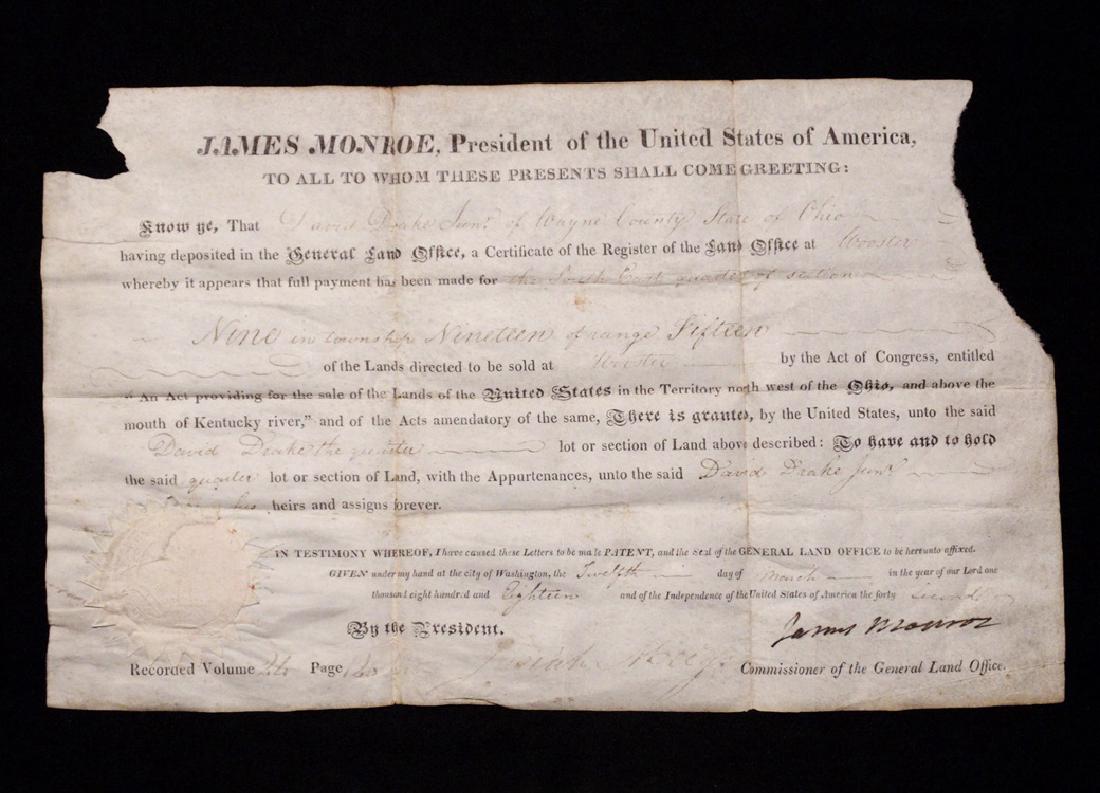 JAMES MONROE, President of the United States of America,
TO ALL TO WHOM THESE PRESENTS SHALL COME GREETING:
Know ye, That David Drake Junr. of Wayne County State of Ohio
having deposited in the General Land Office, a Certificate of the Register of the Land Office at Wooster
whereby it appears that full payment has been made for the South East quarter of section
Nine in township Nineteen of range Fifteen
of the Lands directed to be sold at Wooster by the Act of Congress, entitled
"An Act providing for the sale of the Lands of the United States in the Territory north west of the Ohio, and above the
mouth of Kentucky river," and of the Acts amendatory of the same, There is granted, by the United States, unto the said
David Drake the quarter lot or section of Land above described: To have and to hold
the said quarter lot or section of Land, with the Appurtenances, unto the said David Drake Junr.
his heirs and assigns forever.
IN TESTIMONY WHEREOF, I have caused these Letters to be made PATENT, and the Seal of the GENERAL LAND OFFICE to be hereunto affixed.
GIVEN under my hand at the city of Washington, the Twelfth day of March in the year of our Lord one
thousand eight hundred and Eighteen and of the Independence of the United States of America the forty second
By the President. James Monroe
Recorded Volume Page Josiah Meigs Commissioner of the General Land Office.